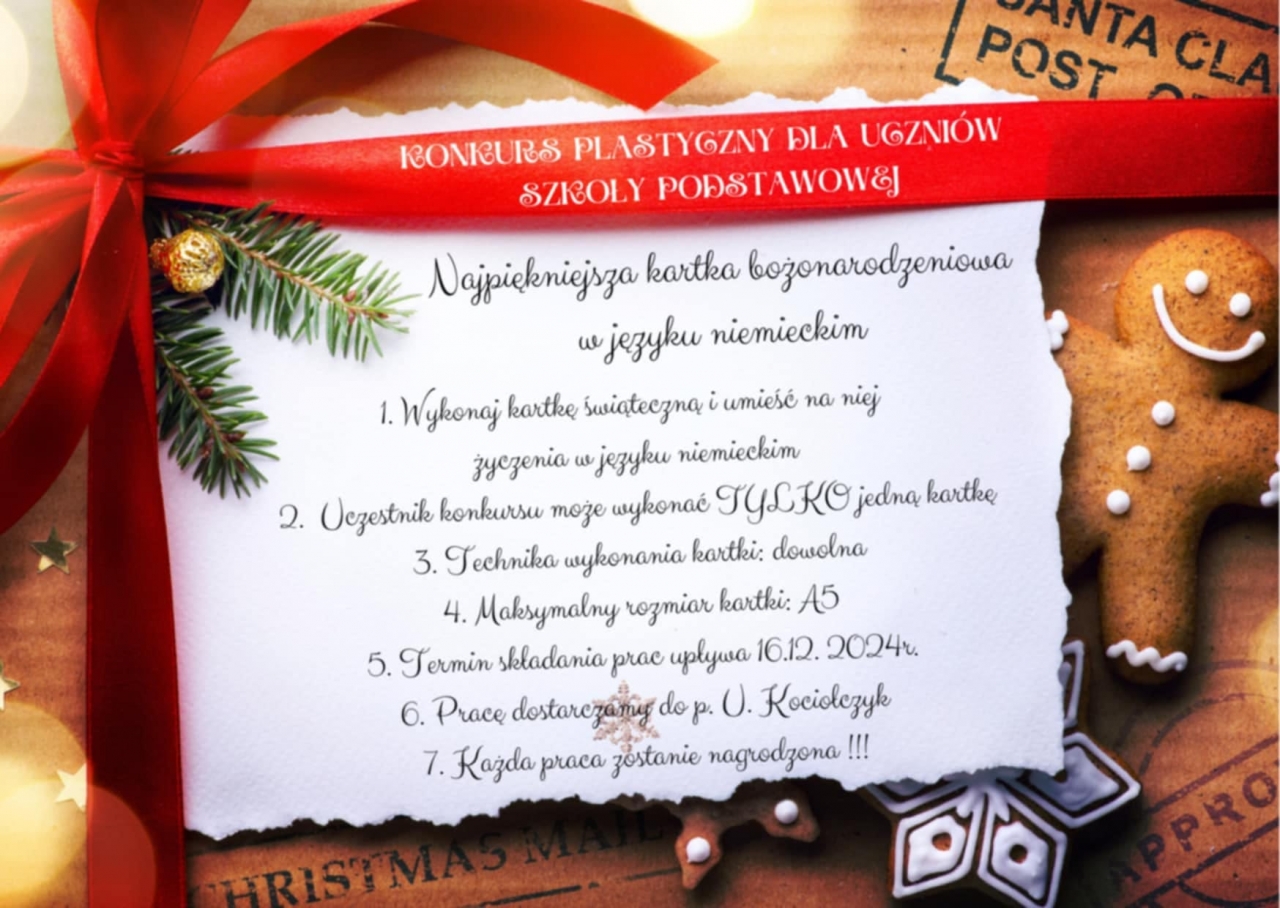 SANTA CLA
POST
KONKURS PLASTYCZNY DLA UCZNIÓW
SZKOLY PODSTAWOWEJ
Najpiękniejsza kartka bożonarodzeniowa
w języku niemieckim
1. Wykonaj kartkę świąteczną i umieść na niej
życzenia w języku niemieckim
2. Uczestnik konkursu może wykonać TYLKO jedną kartkę
3. Technika wykonania kartki: dowolna
4. Maksymalny rozmiar kartki: A5
5. Termin składania prac upływa 16.12. 2024r.
6. Pracę dostarczamy do p. U. Kociolczyk
7. Każda praca zostanie nagrodzona !!!
CHRISTMAS MAIL
APPRO